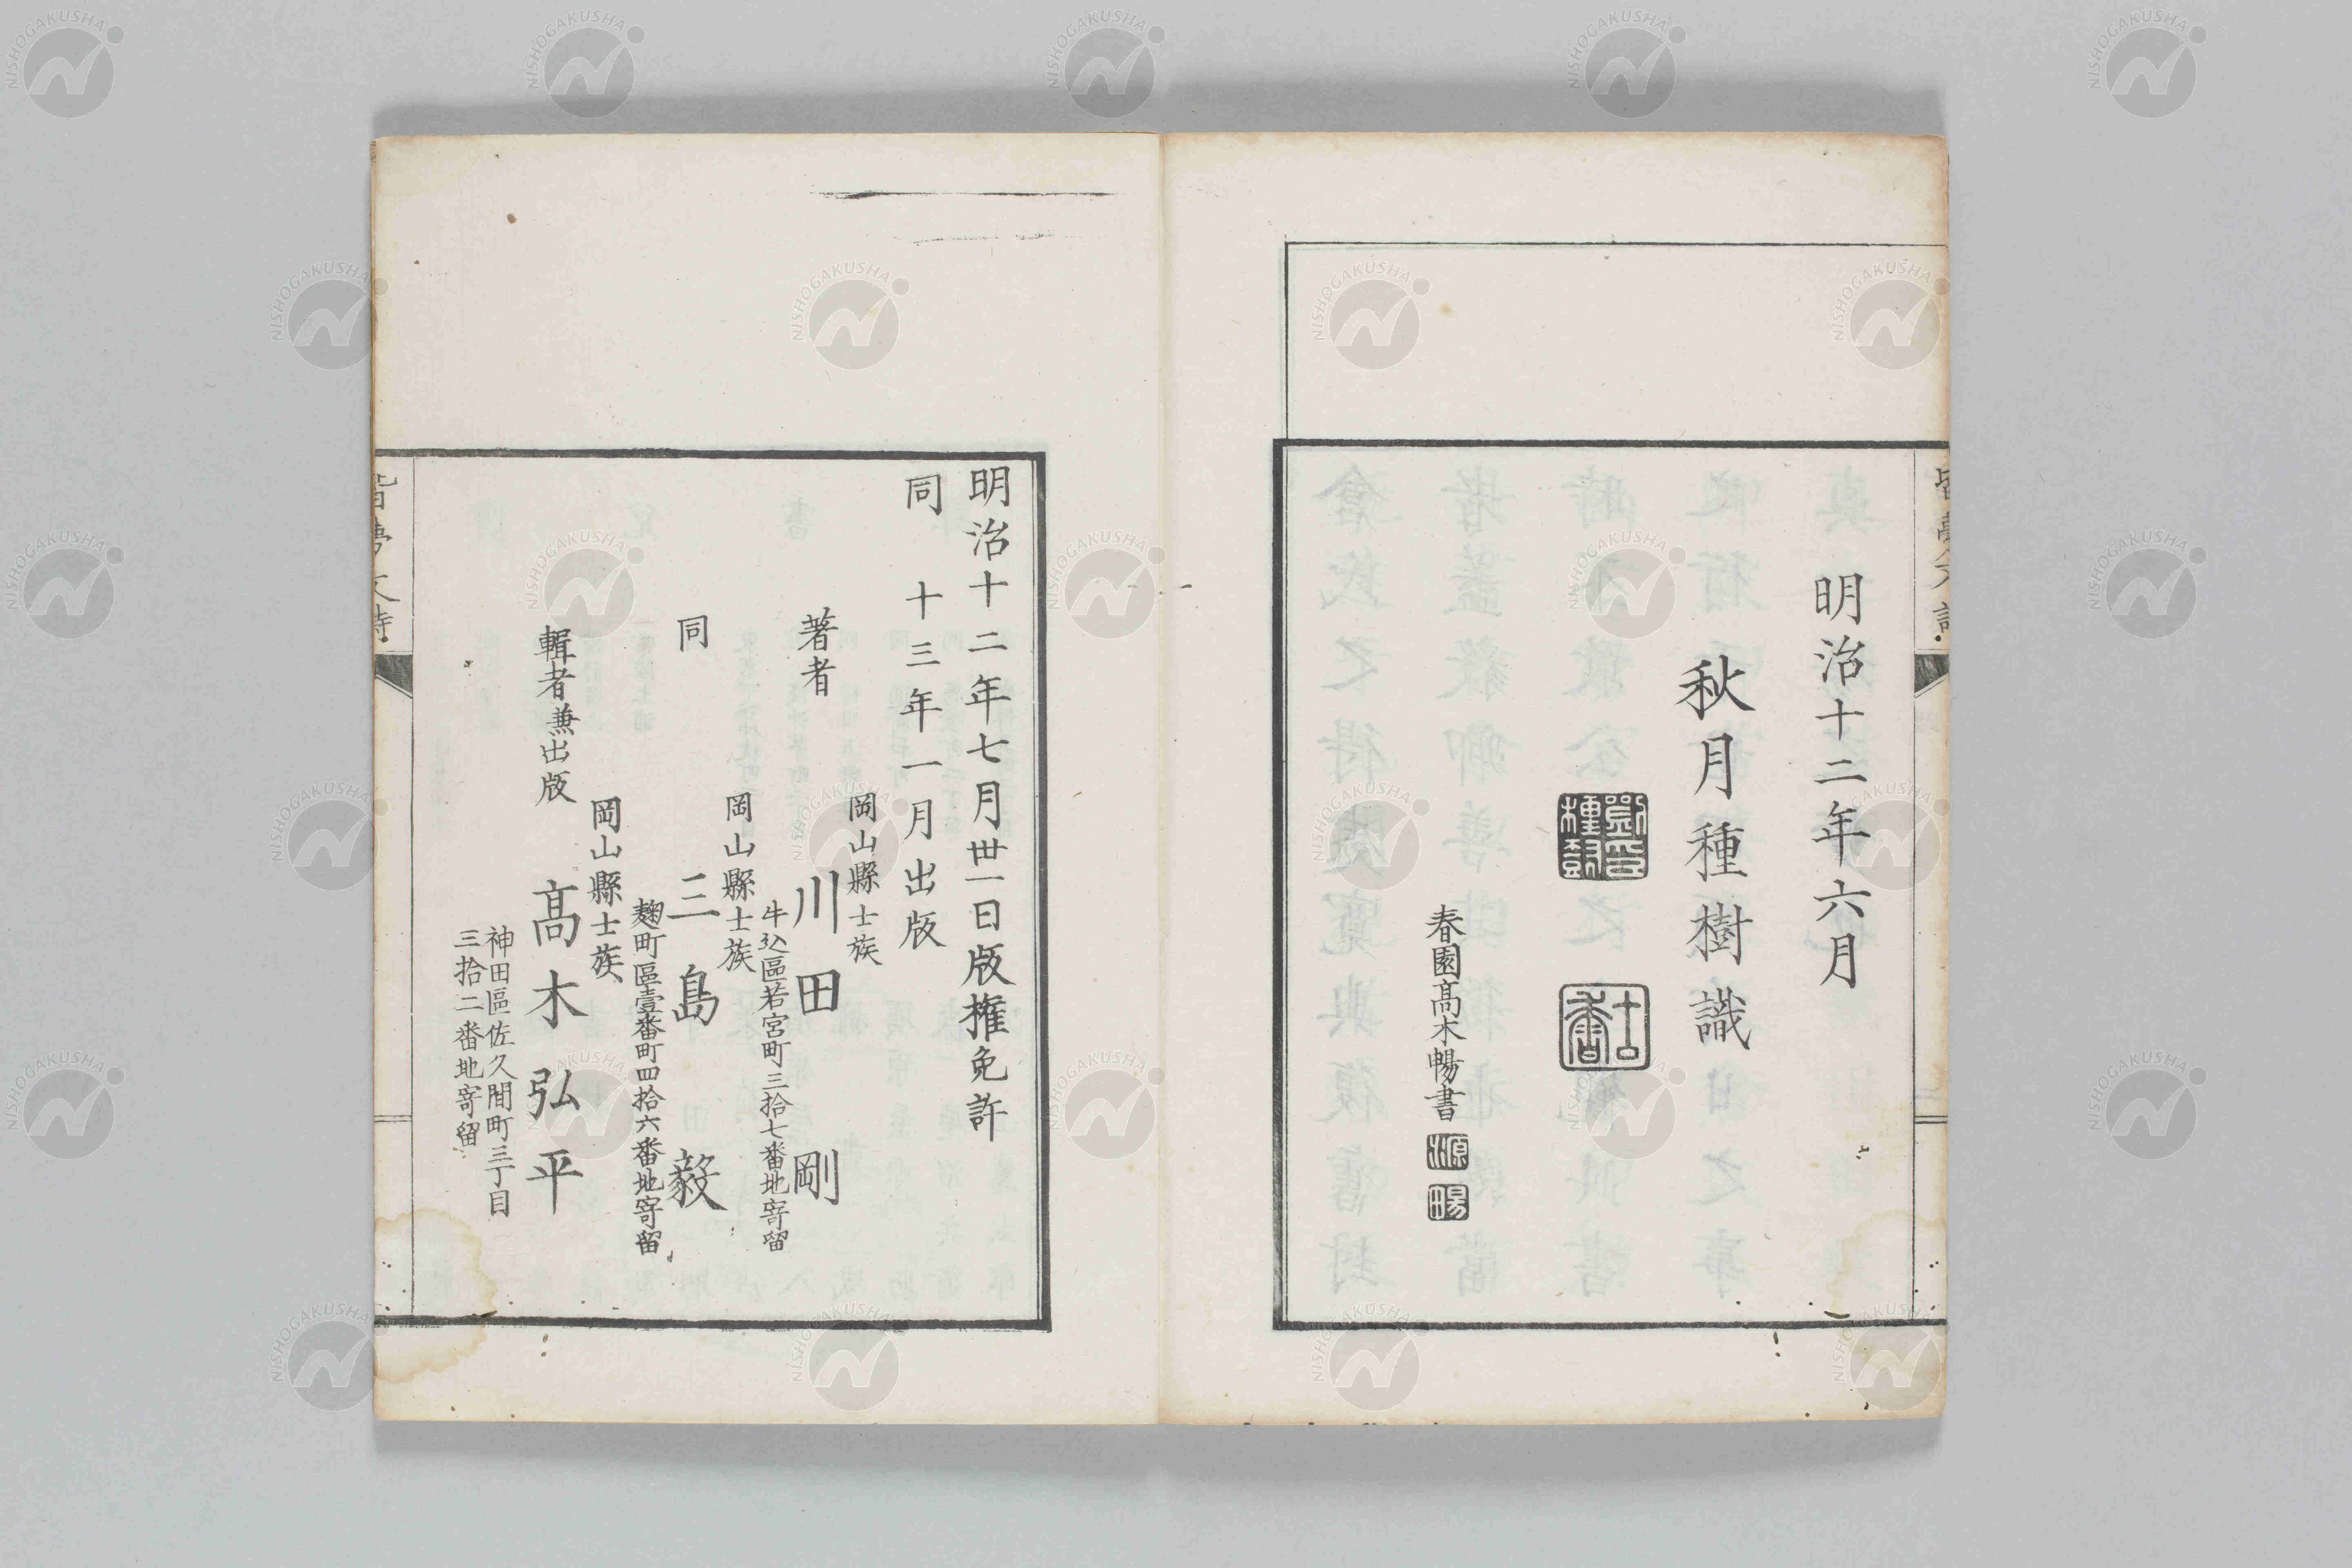 明治十二年六月
秋月種樹識
春園髙木暢書
明治十二年七月丗一日版権免許
同 十三年一月出版
岡山縣士族
著者 川田 剛
牛込區若宮町三拾七番地寄留
岡山縣士族
同 三島 毅
麹町區壹番町四拾六番地寄留
岡山縣士族
輯者兼出版 髙木弘平
神田區佐久間町三丁目
三拾二番地寄留
NISHOGAKUSHA